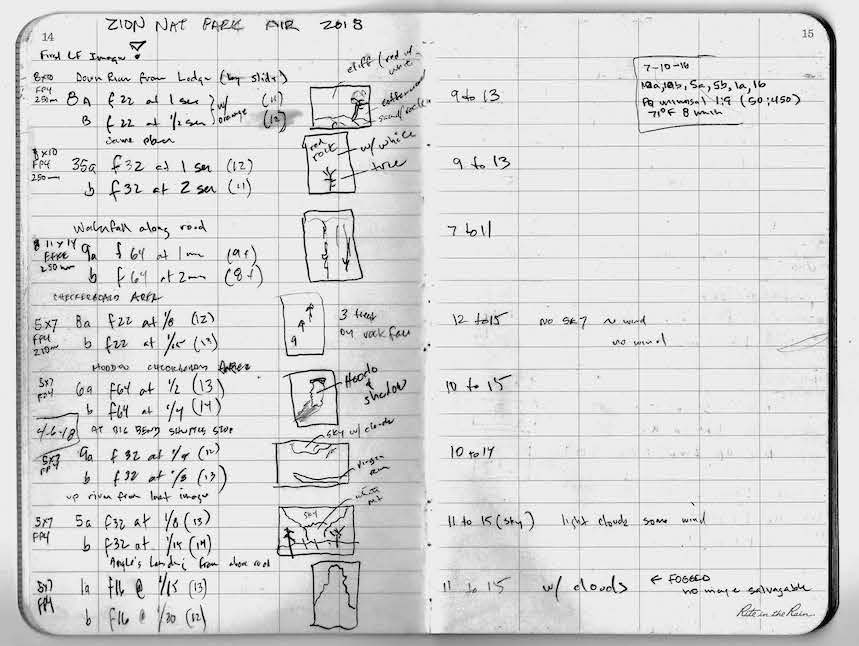 14
ZION NAT PARK AIR 2018
First LF Image!
8x10 Down River from Lodge (by slide)
FP4 8A f22 at 1 sec (11)
250mm B f22 at 1/2 sec (12)
w/ orange
same place
cliff (red w/ white
cottonwood
sand/rocks
8x10 35a f32 at 1 sec (12)
FP4 b f32 at 2 sec (11)
250mm
red rock
w/ white
tree
Waterfall along road
11x14 9a f64 at 1 min (9+)
250mm b f64 at 2 min (8+)
CHECKERBOARD AREA
5x7 8a f22 at 1/8 (12)
FP4 b f22 at 1/15 (13)
210mm
3 trees on rock face
HOODOO CHECKERBOARD AREA
5x7 6a f64 at 1/2 (13)
FP4 b f64 at 1/4 (14)
Hoodo & shadow
4-6-18 AT BIG BEND SHUTTLE STOP
5x7 9a f32 at 1/4 (12)
FP4 b f32 at 1/8 (13)
sky w/ clouds
up river from last image
5x7 5a f32 at 1/8 (13)
FP4 b f32 at 1/15 (14)
sky
white mt
Angle's Landing from above road
5x7 1a f16 @ 1/15 (13)
FP4 b f16 @ 1/30 (12)
15
7-10-18
10a, 10b, 5a, 5b, 1a, 1b
PQ universal 1:9 (50:450)
71°F 8 min
9 to 13
9 to 13
7 to 11
12 to 15 no sky no wind
no wind
10 to 15
10 to 14
11 to 15 (sky) light clouds some wind
11 to 15 w/ clouds ← FOGGED
no image salvagable
Rite in the Rain